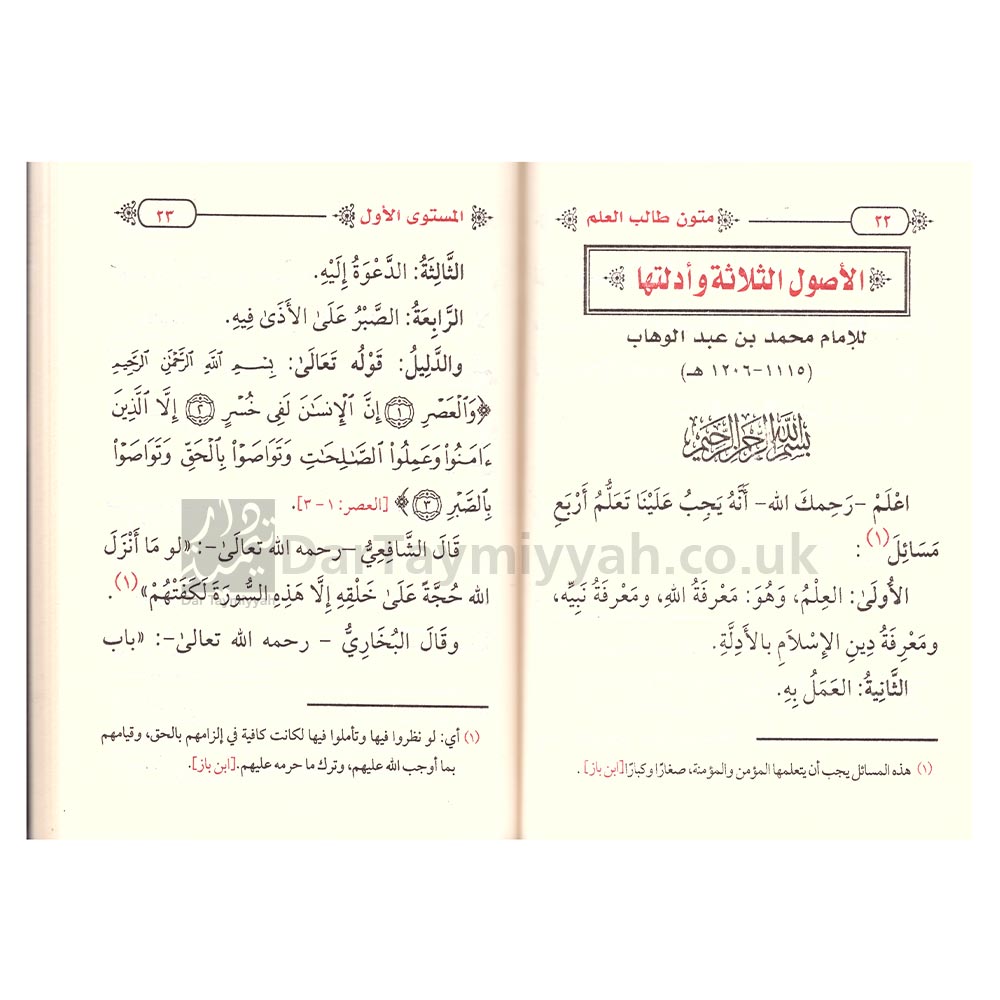 ٢٢ متون طالب العلم
الأصول الثلاثة وأدلتها
للإمام محمد بن عبد الوهاب
(١١١٥-١٢٠٦ هـ)
بسم الله الرحمن الرحيم
اعْلَمْ -رَحِمكَ الله- أَنَّهُ يَجِبُ عَلَيْنَا تَعَلُّمُ أَرْبَعِ
مَسَائِلَ(١) :
الأُولَىٰ: العِلْمُ، وَهُوَ: مَعْرِفَةُ اللهِ، وَمَعْرِفَةُ نَبِيِّهِ،
ومَعْرِفَةُ دِينِ الإِسْلَامِ بالأدِلَّةِ.
الثَّانِيةُ: العَمَلُ بِهِ.
(١) هذه المسائل يجب أن يتعلمها المؤمن والمؤمنة، صغارًا وكبارًا [ابن باز] .
المستوى الأول ٢٣
الثَّالِثَةُ: الدَّعْوَةُ إِلَيْهِ.
الرَّابِعَةُ: الصَّبْرُ عَلَىٰ الأَذَىٰ فِيهِ.
والدَّلِيلُ: قَوْلُه تَعَالَىٰ: بِسْمِ ٱللَّهِ ٱلرَّحْمَٰنِ ٱلرَّحِيمِ
﴿وَٱلْعَصْرِ ۝١ إِنَّ ٱلْإِنسَٰنَ لَفِى خُسْرٍ ۝٢ إِلَّا ٱلَّذِينَ
ءَامَنُوا۟ وَعَمِلُوا۟ ٱلصَّٰلِحَٰتِ وَتَوَاصَوْا۟ بِٱلْحَقِّ وَتَوَاصَوْا۟
بِٱلصَّبْرِ ۝٣﴾ [العصر: ١ - ٣].
قَالَ الشَّافِعِيُّ -رحمه الله تعالَىٰ-: «لو مَا أَنْزَلَ
الله حُجَّةً عَلَىٰ خَلْقِهِ إِلَّا هَذِهِ السُّورَةَ لَكَفَتْهُمْ»(١).
وقَالَ البُخَارِيُّ - رحمه الله تعالى-: «باب
(١) أي: لو نظروا فيها وتأملوا فيها لكانت كافية في إلزامهم بالحق، وقيامهم
بما أوجب الله عليهم، وترك ما حرمه عليهم. [ابن باز].
DarTaymiyyah.co.uk
Dar Taymiyyah